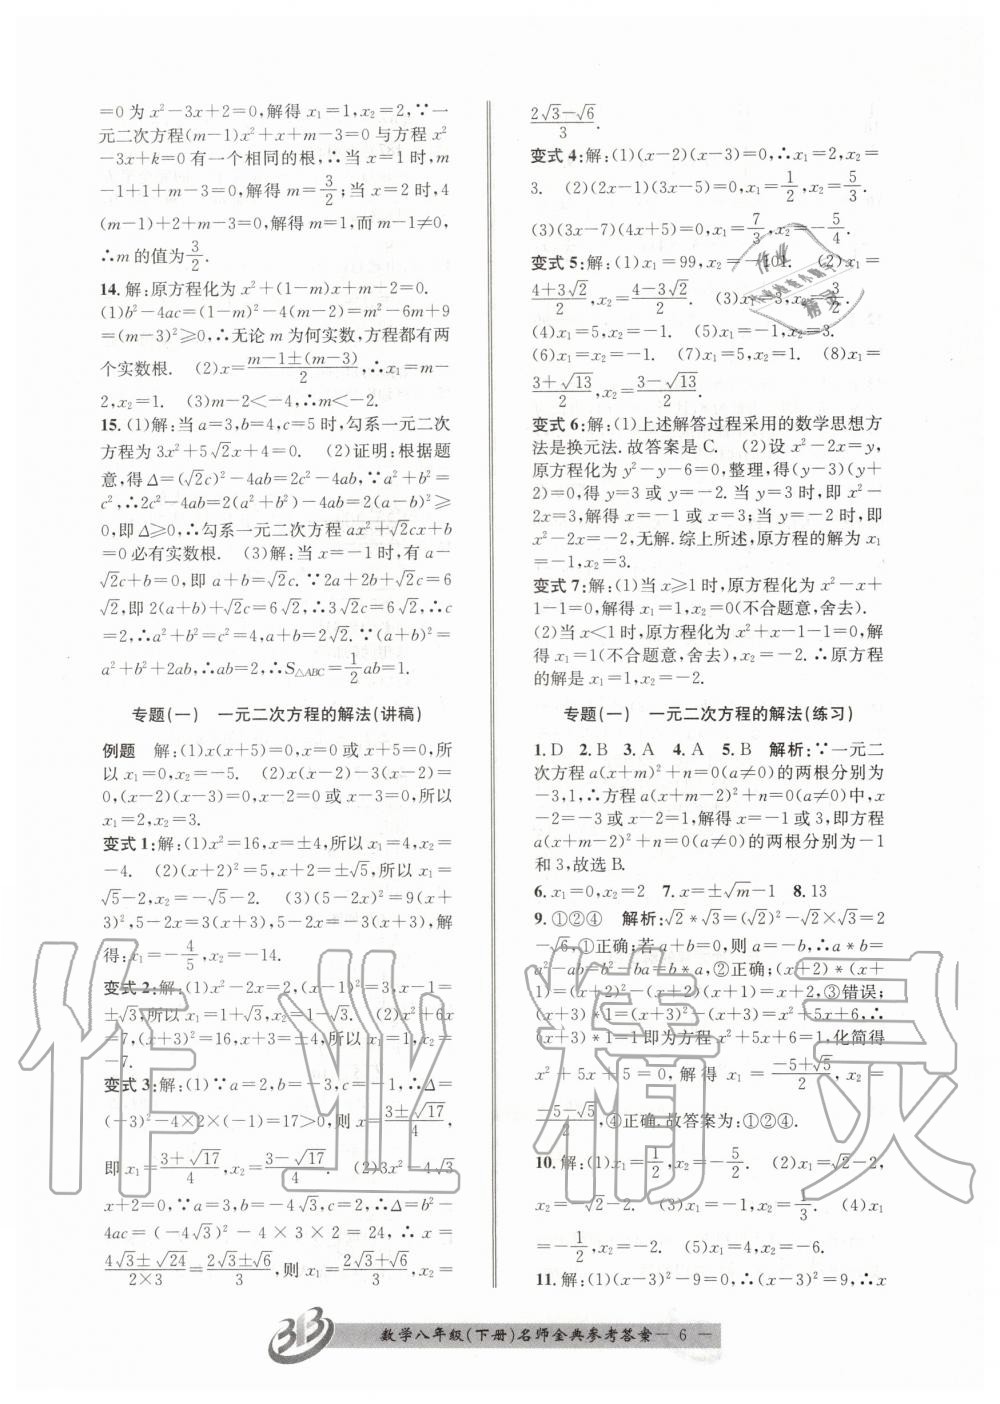 =0 为 x²-3x+2=0,解得 x₁=1,x₂=2,∵一
元二次方程(m-1)x²+x+m-3=0 与方程 x²
-3x+k=0 有一个相同的根,∴当 x=1 时,m
-1+1+m-3=0,解得 m=3/2;当 x=2 时,4
(m-1)+2+m-3=0,解得 m=1,而 m-1≠0,
∴m 的值为3/2.
14. 解:原方程化为 x²+(1-m)x+m-2=0.
(1)b²-4ac=(1-m)²-4(m-2)=m²-6m+9
=(m-3)²≥0,∴无论 m 为何实数,方程都有两
个实数根. (2)x=(m-1±(m-3))/2,∴x₁=m-
2,x₂=1. (3)m-2<-4,∴m<-2.
15. (1)解:当 a=3,b=4,c=5 时,勾系一元二次
方程为 3x²+5√2x+4=0. (2)证明:根据题
意,得 Δ=(√2c)²-4ab=2c²-4ab,∵a²+b²=
c²,∴2c²-4ab=2(a²+b²)-4ab=2(a-b)²≥
0,即 Δ≥0,∴勾系一元二次方程 ax²+√2cx+b
=0 必有实数根. (3)解:当 x=-1 时,有 a-
√2c+b=0,即 a+b=√2c. ∵2a+2b+√2c=6
√2,即 2(a+b)+√2c=6√2,∴3√2c=6√2,∴c
=2,∴a²+b²=c²=4,a+b=2√2. ∵(a+b)²=
a²+b²+2ab,∴ab=2,∴S△ABC=1/2ab=1.
专题(一) 一元二次方程的解法(讲稿)
例题 解:(1)x(x+5)=0,x=0 或 x+5=0,所
以 x₁=0,x₂=-5. (2)x(x-2)-3(x-2)=
0,(x-2)(x-3)=0,x-2=0 或 x-3=0,所以
x₁=2,x₂=3.
变式 1:解:(1)x²=16,x=±4,所以 x₁=4,x₂=
-4. (2)(x+2)²=5,x+2=±√5,所以 x₁=
√5-2,x₂=-√5-2. (3)(5-2x)²=9(x+
3)²,5-2x=3(x+3),5-2x=-3(x+3),解
得:x₁=-4/5,x₂=-14.
变式 2:解:(1)x²-2x=2,(x-1)²=3,x-1=
±√3,所以 x₁=1+√3,x₂=1-√3. (2)x²+6x
=7,(x+3)²=16,x+3=±4,所以 x₁=1,x₂=
-7.
变式 3:解:(1)∵a=2,b=-3,c=-1,∴Δ=
(-3)²-4×2×(-1)=17>0,则 x=(3±√17)/4,
即 x₁=(3+√17)/4,x₂=(3-√17)/4. (2)3x²-4√3
x+2=0,∵a=3,b=-4√3,c=2,∴Δ=b²-
4ac=(-4√3)²-4×3×2=24,∴x=
(4√3±√24)/(2×3)=(2√3±√6)/3,则 x₁=(2√3+√6)/3,x₂=
(2√3-√6)/3.
变式 4:解:(1)(x-2)(x-3)=0,∴x₁=2,x₂=
3. (2)(2x-1)(3x-5)=0,x₁=1/2,x₂=5/3.
(3)(3x-7)(4x+5)=0,x₁=7/3,x₂=-5/4.
变式 5:解:(1)x₁=99,x₂=-101. (2)x₁=
(4+3√2)/2,x₂=(4-3√2)/2. (3)x₁=-3,x₂=3/2.
(4)x₁=5,x₂=-1. (5)x₁=-1,x₂=5.
(6)x₁=-1,x₂=5. (7)x₁=5,x₂=-1. (8)x₁=
(3+√13)/2,x₂=(3-√13)/2.
变式 6:解:(1)上述解答过程采用的数学思想方
法是换元法. 故答案是 C. (2)设 x²-2x=y,
原方程化为 y²-y-6=0,整理,得(y-3)(y+
2)=0,得 y=3 或 y=-2. 当 y=3 时,即 x²-
2x=3,解得 x=-1 或 x=3;当 y=-2 时,即
x²-2x=-2,无解. 综上所述,原方程的解为 x₁
=-1,x₂=3.
变式 7:解:(1)当 x≥1 时,原方程化为 x²-x+
1-1=0,解得 x₁=1,x₂=0(不合题意,舍去).
(2)当 x<1 时,原方程化为 x²+x-1-1=0,解
得 x₁=1(不合题意,舍去),x₂=-2. 故原方程
的解是 x₁=1,x₂=-2.
专题(一) 一元二次方程的解法(练习)
1. D 2. B 3. A 4. A 5. B 解析:∵一元二
次方程 a(x+m)²+n=0(a≠0)的两根分别为
-3,1,∴方程 a(x+m-2)²+n=0(a≠0)中,x
-2=-3 或 x-2=1,解得 x=-1 或 3,即方程
a(x+m-2)²+n=0(a≠0)的两根分别为-1
和 3,故选 B.
6. x₁=0,x₂=2 7. x=±√m-1 8. 13
9. ①②④ 解析:√2*√3=(√2)²-√2×√3=2
-√6,①正确;若 a+b=0,则 a=-b,∴a*b=
a²-ab=b²-ba=b*a,②正确;(x+2)*(x+
1)=(x+2)²-(x+2)(x+1)=x+2,③错误;
(x+3)*1=(x+3)²-(x+3)×1=x²+5x+6,∴
(x+3)*1=1 即为方程 x²+5x+6=1,化简得
x²+5x+5=0,解得 x₁=(-5+√5)/2,x₂=
(-5-√5)/2,④正确. 故答案为:①②④.
10. 解:(1)x₁=1/2,x₂=-5/2. (2)x₁=√2-2,
x₂=-√2-2. (3)x₁=-1,x₂=1/3. (4)x₁
=-1/2,x₂=-2. (5)x₁=4,x₂=-6.
11. 解:(1)(x-3)²-9=0,∴(x-3)²=9,∴x
数学八年级(下册)名师金典参考答案— 6 —
作业精灵